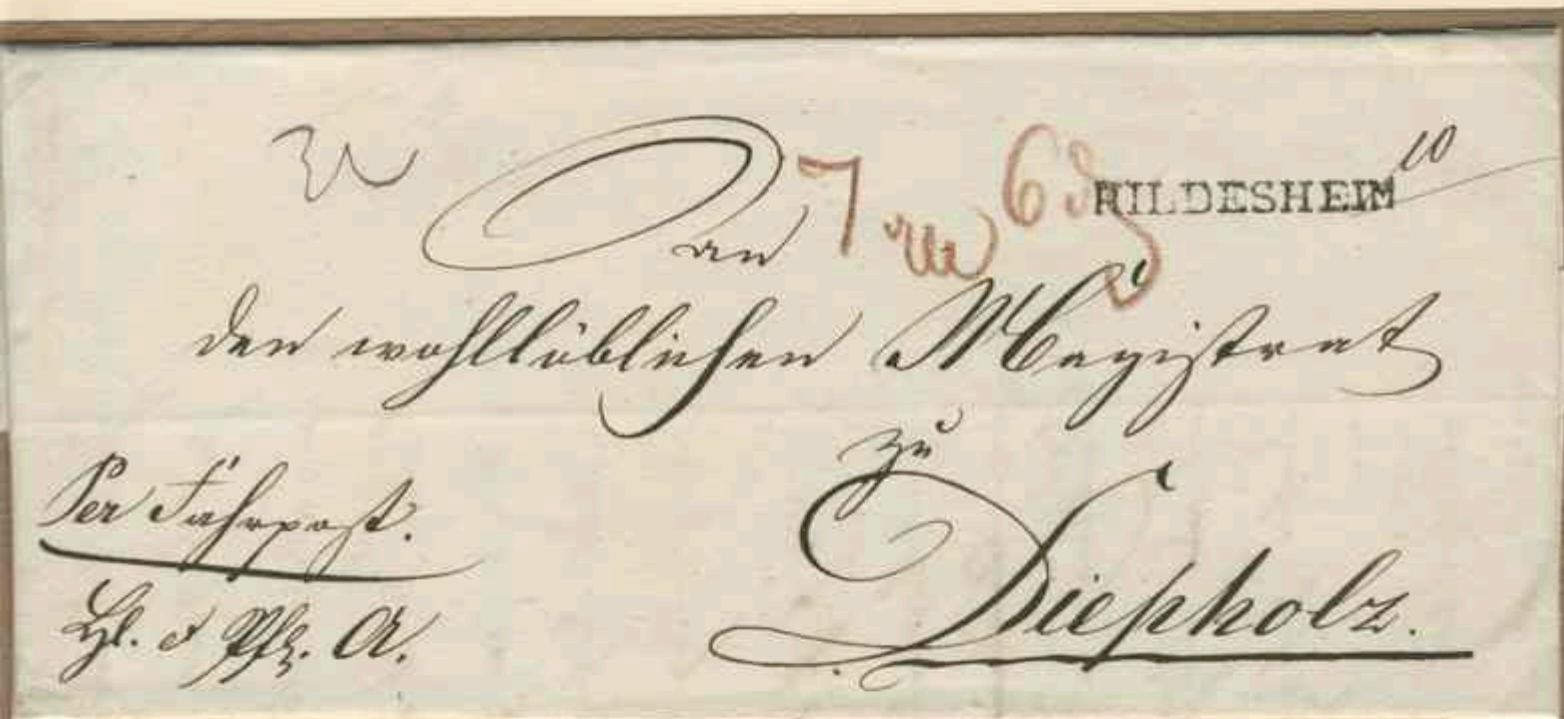 10
HILDESHEIM
7 6
An
den wohllöblichen Magistrat
zu
Diepholz.
Per Fahrpost.
A.